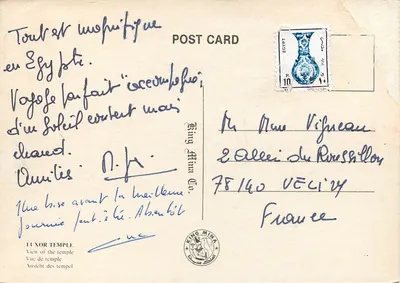 Tout est magnifique
en Egypte.
Voyage parfait "accompagné"
d'un Soleil content mais
chaud.
Amitiés
Une bise avant la meilleure
journée peut-être. A bientôt
POST CARD
EGYPT
10
١٠
King Mina Co.
M Mme Vigneau
2 allée du Roussillon
78140 VELIZY
France
LUXOR TEMPLE
View of the temple
Vue du temple
Ansicht des tempel
KING MINA